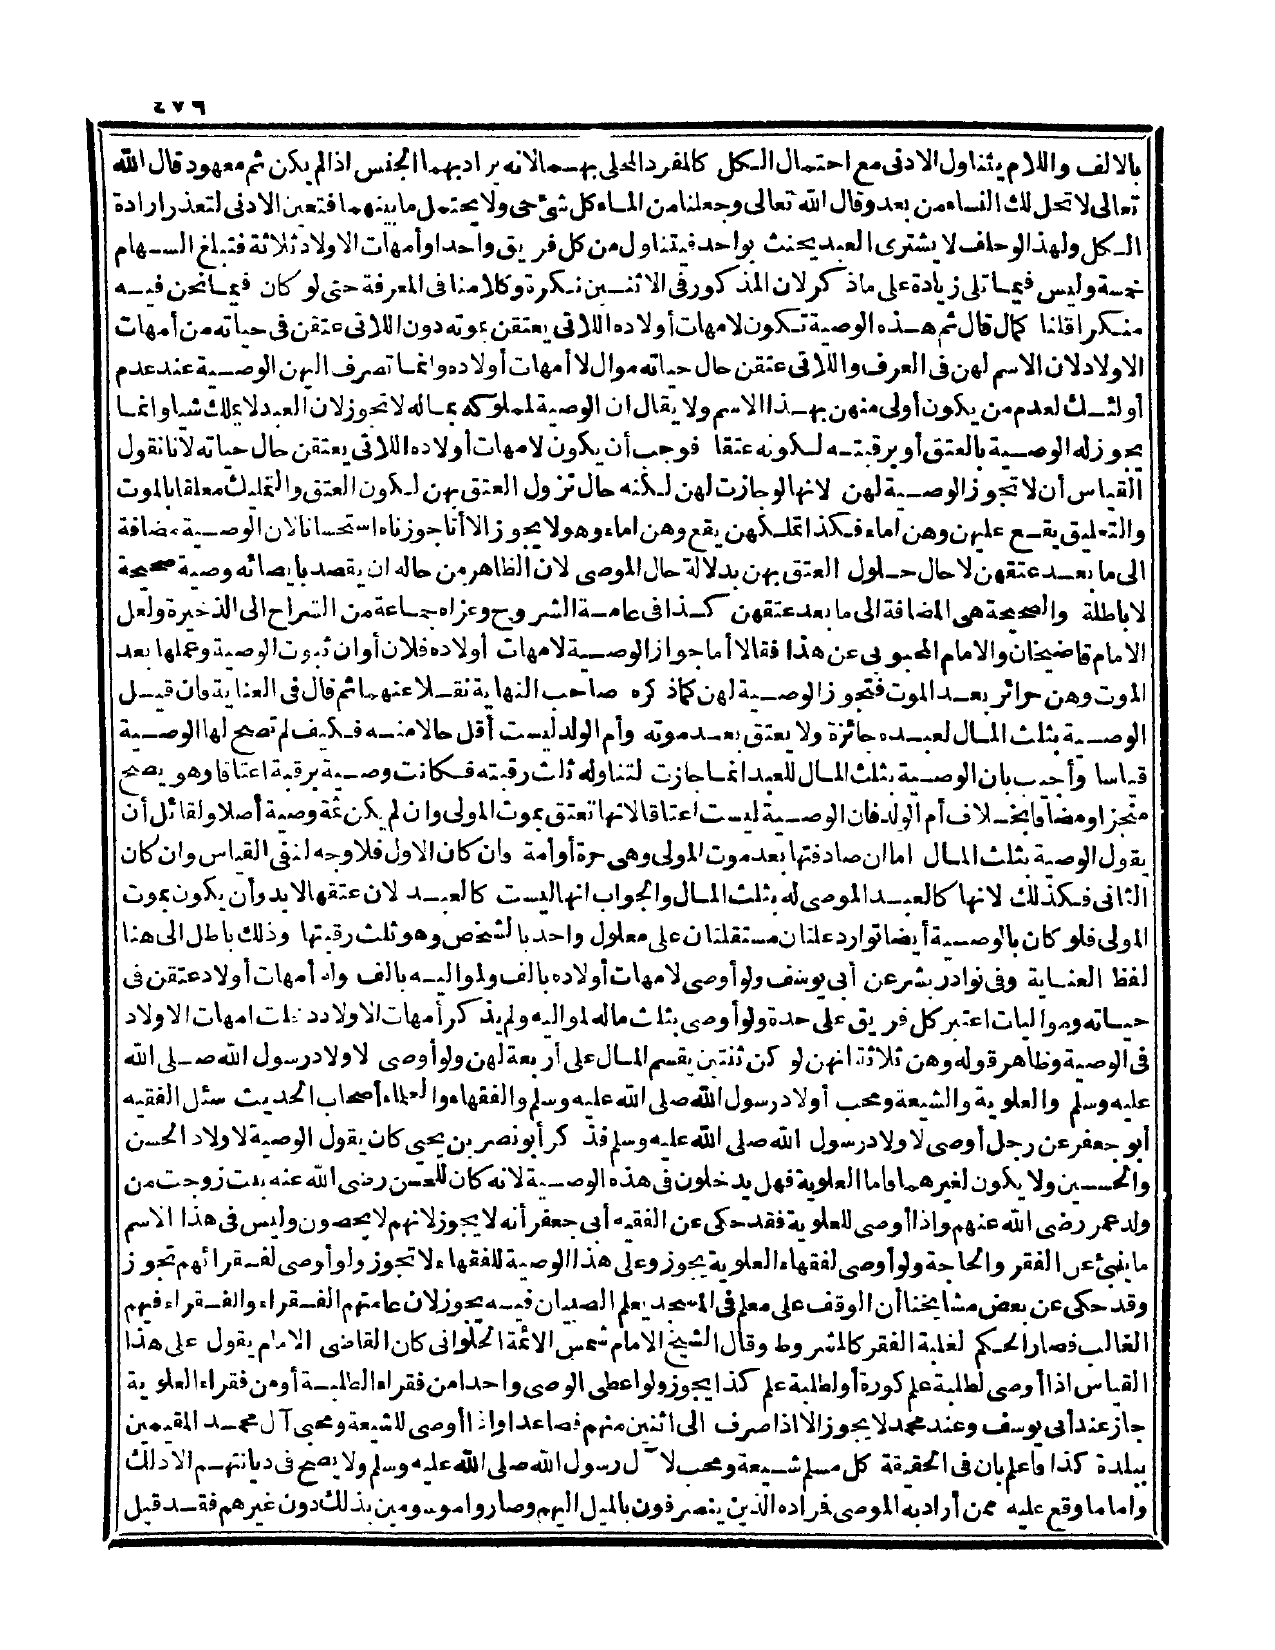 ٤٧٦
بالالف واللام يتناول الادنى مع احتمال الكل كالمفرد المحلى بهما لانه يراد بهما الجنس اذا لم يكن ثم معهود قال الله
تعالى لا تحل لك النساء من بعد وقال الله تعالى وجعلنا من الماء كل شئ حى ولا يحتمل ما بينهما فتعين الادنى لتعذر ارادة
الكل ولهذا لو حلف لا يشترى العبد يحنث بواحد فيتناول من كل فريق واحدا وأمهات الاولاد ثلاثة فتبلغ السهام
خمسة وليس فيما تلى زيادة على ما ذكر لان المذكور فى الاثنين نكرة وكلامنا فى المعرفة حتى لو كان فيما نحن فيه
منكرا قلنا كما قال ثم هذه الوصية تكون لامهات أولاده اللاتى يعتقن بموته دون اللاتى عتقن فى حياته من أمهات
الاولاد لان الاسم لهن فى العرف واللاتى عتقن حال حياته موال لا أمهات أولاده وانما تصرف اليهن الوصية عند عدم
أولئك لعدم من يكون أولى منهن بهذا الاسم ولا يقال ان الوصية لمملوكه بماله لا تجوز لان العبد لا يملك شيا وانما
يجوز له الوصية بالعتق أو برقبته لكونه عتقا فوجب أن يكون لامهات أولاده اللاتى يعتقن حال حياته لانا نقول
القياس أن لا تجوز الوصية لهن لانها لو جازت لهن لكنه حال نزول العتق بهن لكون العتق والتمليك معلقا بالموت
والتعليق يقع عليهن وهن اماء فكذا تملكهن يقع وهن اماء وهو لا يجوز الا أنا جوزناه استحسانا لان الوصية مضافة
الى ما بعد عتقهن لا حال حلول العتق بهن بدلالة حال الموصى لان الظاهر من حاله ان يقصد بايصائه وصية صحيحة
لا باطلة والصحيحة هى المضافة الى ما بعد عتقهن كذا فى عامة الشروح وعزاه جماعة من الشراح الى الذخيرة ولعل
الامام قاضيخان والامام المحبوبى عن هذا فقالا أما جواز الوصية لامهات أولاده فلان أوان ثبوت الوصية وعملها بعد
الموت وهن حرائر بعد الموت فتجوز الوصية لهن كما ذكره صاحب النهاية نقلا عنهما ثم قال فى العناية فان قيل
الوصية بثلث المال لعبده جائزة ولا يعتق بعد موته وأم الولد ليست أقل حالا منه فكيف لم تصح لها الوصية
قياسا وأجيب بان الوصية بثلث المال للعبد انما جازت لتناوله ثلث رقبته فكانت وصية برقبة اعتاقا وهو يصح
منجزا ومضافا بخلاف أم الولد فان الوصية ليست اعتاقا لانها تعتق بموت المولى وان لم يكن ثمة وصية أصلا ولقائل أن
يقول الوصية بثلث المال اما ان صادفتها بعد موت المولى وهى حرة أو أمة وان كان الاول فلا وجه لنفى القياس وان كان
الثانى فكذلك لانها كالعبد الموصى له بثلث المال والجواب انها ليست كالعبد لان عتقها لا بد وأن يكون بموت
المولى فلو كان بالوصية أيضا توارد علتان مستقلتان على معلول واحد بالشخص وهو ثلث رقبتها وذلك باطل الى هنا
لفظ العناية وفى نوادر بشر عن أبى يوسف ولو أوصى لامهات أولاده بالف ولمواليه بالف وله أمهات أولاد عتقن فى
حياته وموالیات اعتبر كل فريق على حدة ولو أوصى بثلث ماله لمواليه ولم يذكر أمهات الاولاد دخلت امهات الاولاد
فى الوصية وظاهر قوله وهن ثلاثة انهن لو كن ثنتين يقسم المال على أربعة لهن ولو أوصى لاولاد رسول الله صلى الله
عليه وسلم والعلوية والشيعة ومحب أولاد رسول الله صلى الله عليه وسلم والفقهاء والعلماء أصحاب الحديث سئل الفقيه
أبو جعفر عن رجل أوصى لاولاد رسول الله صلى الله عليه وسلم فذكر أبو نصر بن يحيى كان يقول الوصية لاولاد الحسن
والحسين ولا يكون لغيرهما فاما العلوية فهل يدخلون فى هذه الوصية لانه كان للحسن رضى الله عنه بنت زوجت من
ولد عمر رضى الله عنهم واذا أوصى للعلوية فقد حكى عن الفقيه أبى جعفر أنه لا يجوز لانهم لا يحصون وليس فى هذا الاسم
ما ينبئ عن الفقر والحاجة ولو أوصى لفقهاء العلوية يجوز وعلى هذا الوصية للفقهاء لا تجوز ولو أوصى لفقرائهم تجوز
وقد حكى عن بعض مشايخنا أن الوقف على معلم فى المسجد يعلم الصبيان فيه يجوز لان عامتهم الفقراء والفقراء فيهم
الغالب فصار الحكم لغلبة الفقر كالمشروط وقال الشيخ الامام شمس الائمة الحلوانى كان القاضى الامام يقول على هذا
القياس اذا أوصى لطلبة علم كورة أو لطلبة علم كذا يجوز ولو اعطى الوصى واحدا من فقراء الطلبة أو من فقراء العلوية
جاز عند أبى يوسف وعند محمد لا يجوز الا اذا صرف الى اثنين منهم فصاعدا واذا أوصى للشيعة ومحبى آل محمد المقيمين
ببلدة كذا فاعلم بان فى الحقيقة كل مسلم شيعة ومحب لآل رسول الله صلى الله عليه وسلم ولا يصح فى ديانتهم الا ذلك
واما ما وقع عليه ممن أراد به الموصى فمراده الذين ينصرفون بالميل اليهم وصاروا موسومين بذلك دون غيرهم فقد قيل